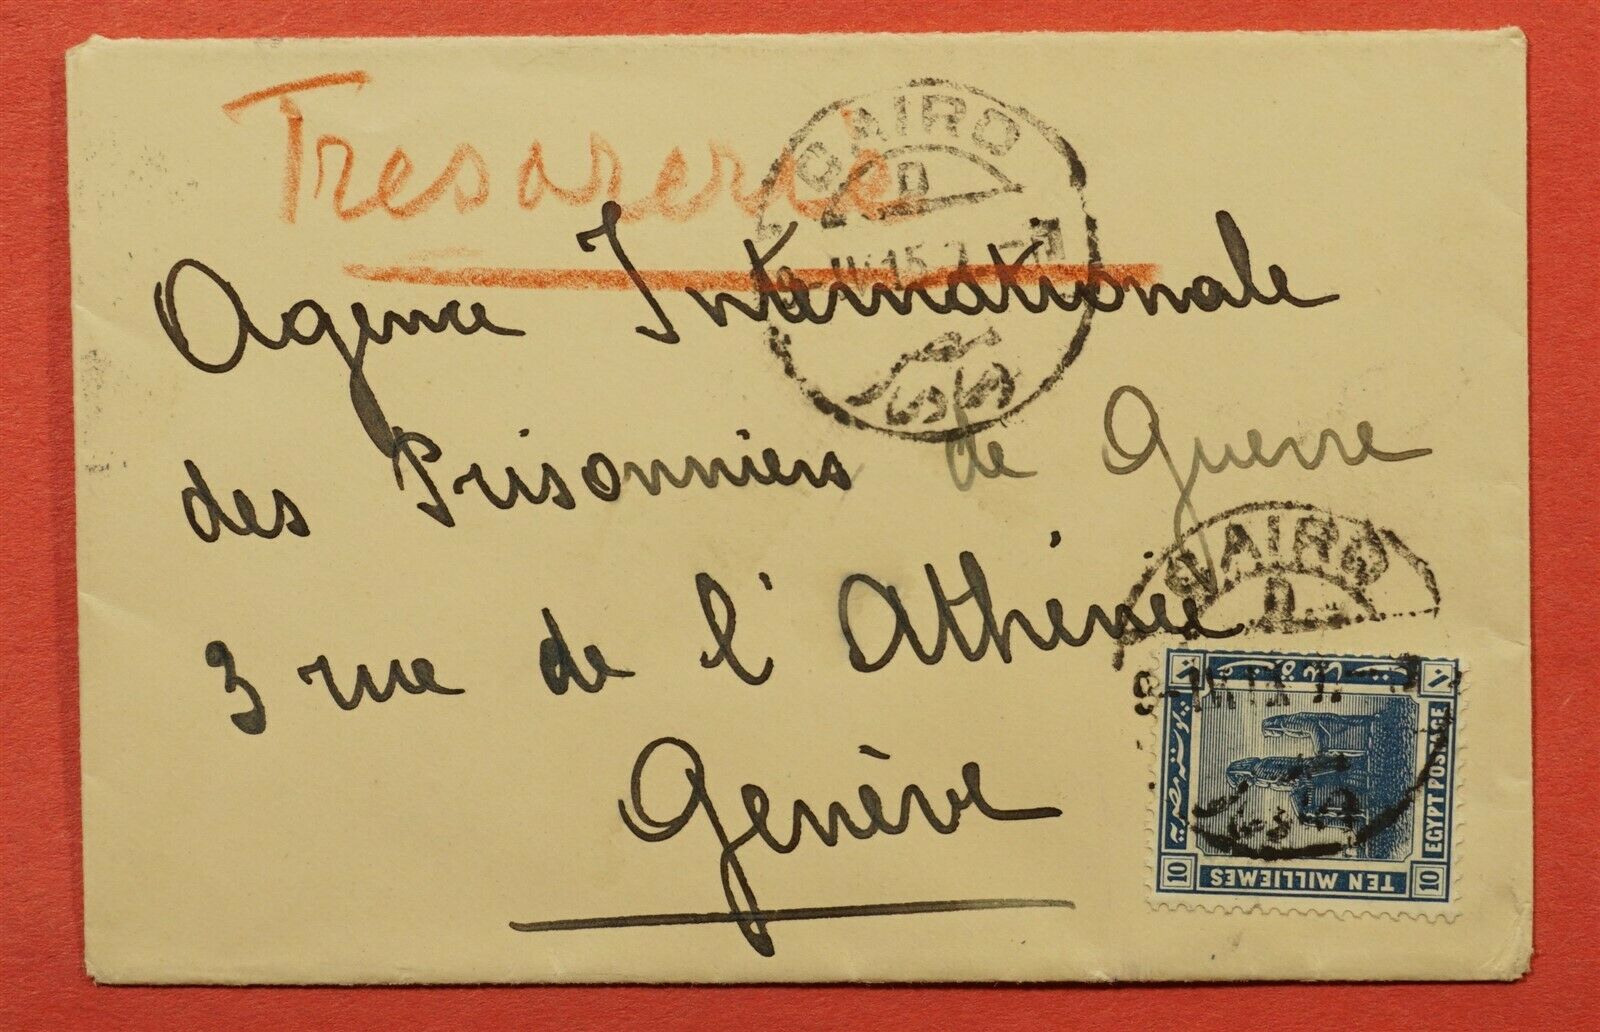 Tresorerie
CAIRO
D
Agence Internationale
des Prisonniers de Guerre
3 rue de l'Athénée
Genève
CAIRO
D
EGYPT POSTAGE
TEN MILLIEMES
10
10